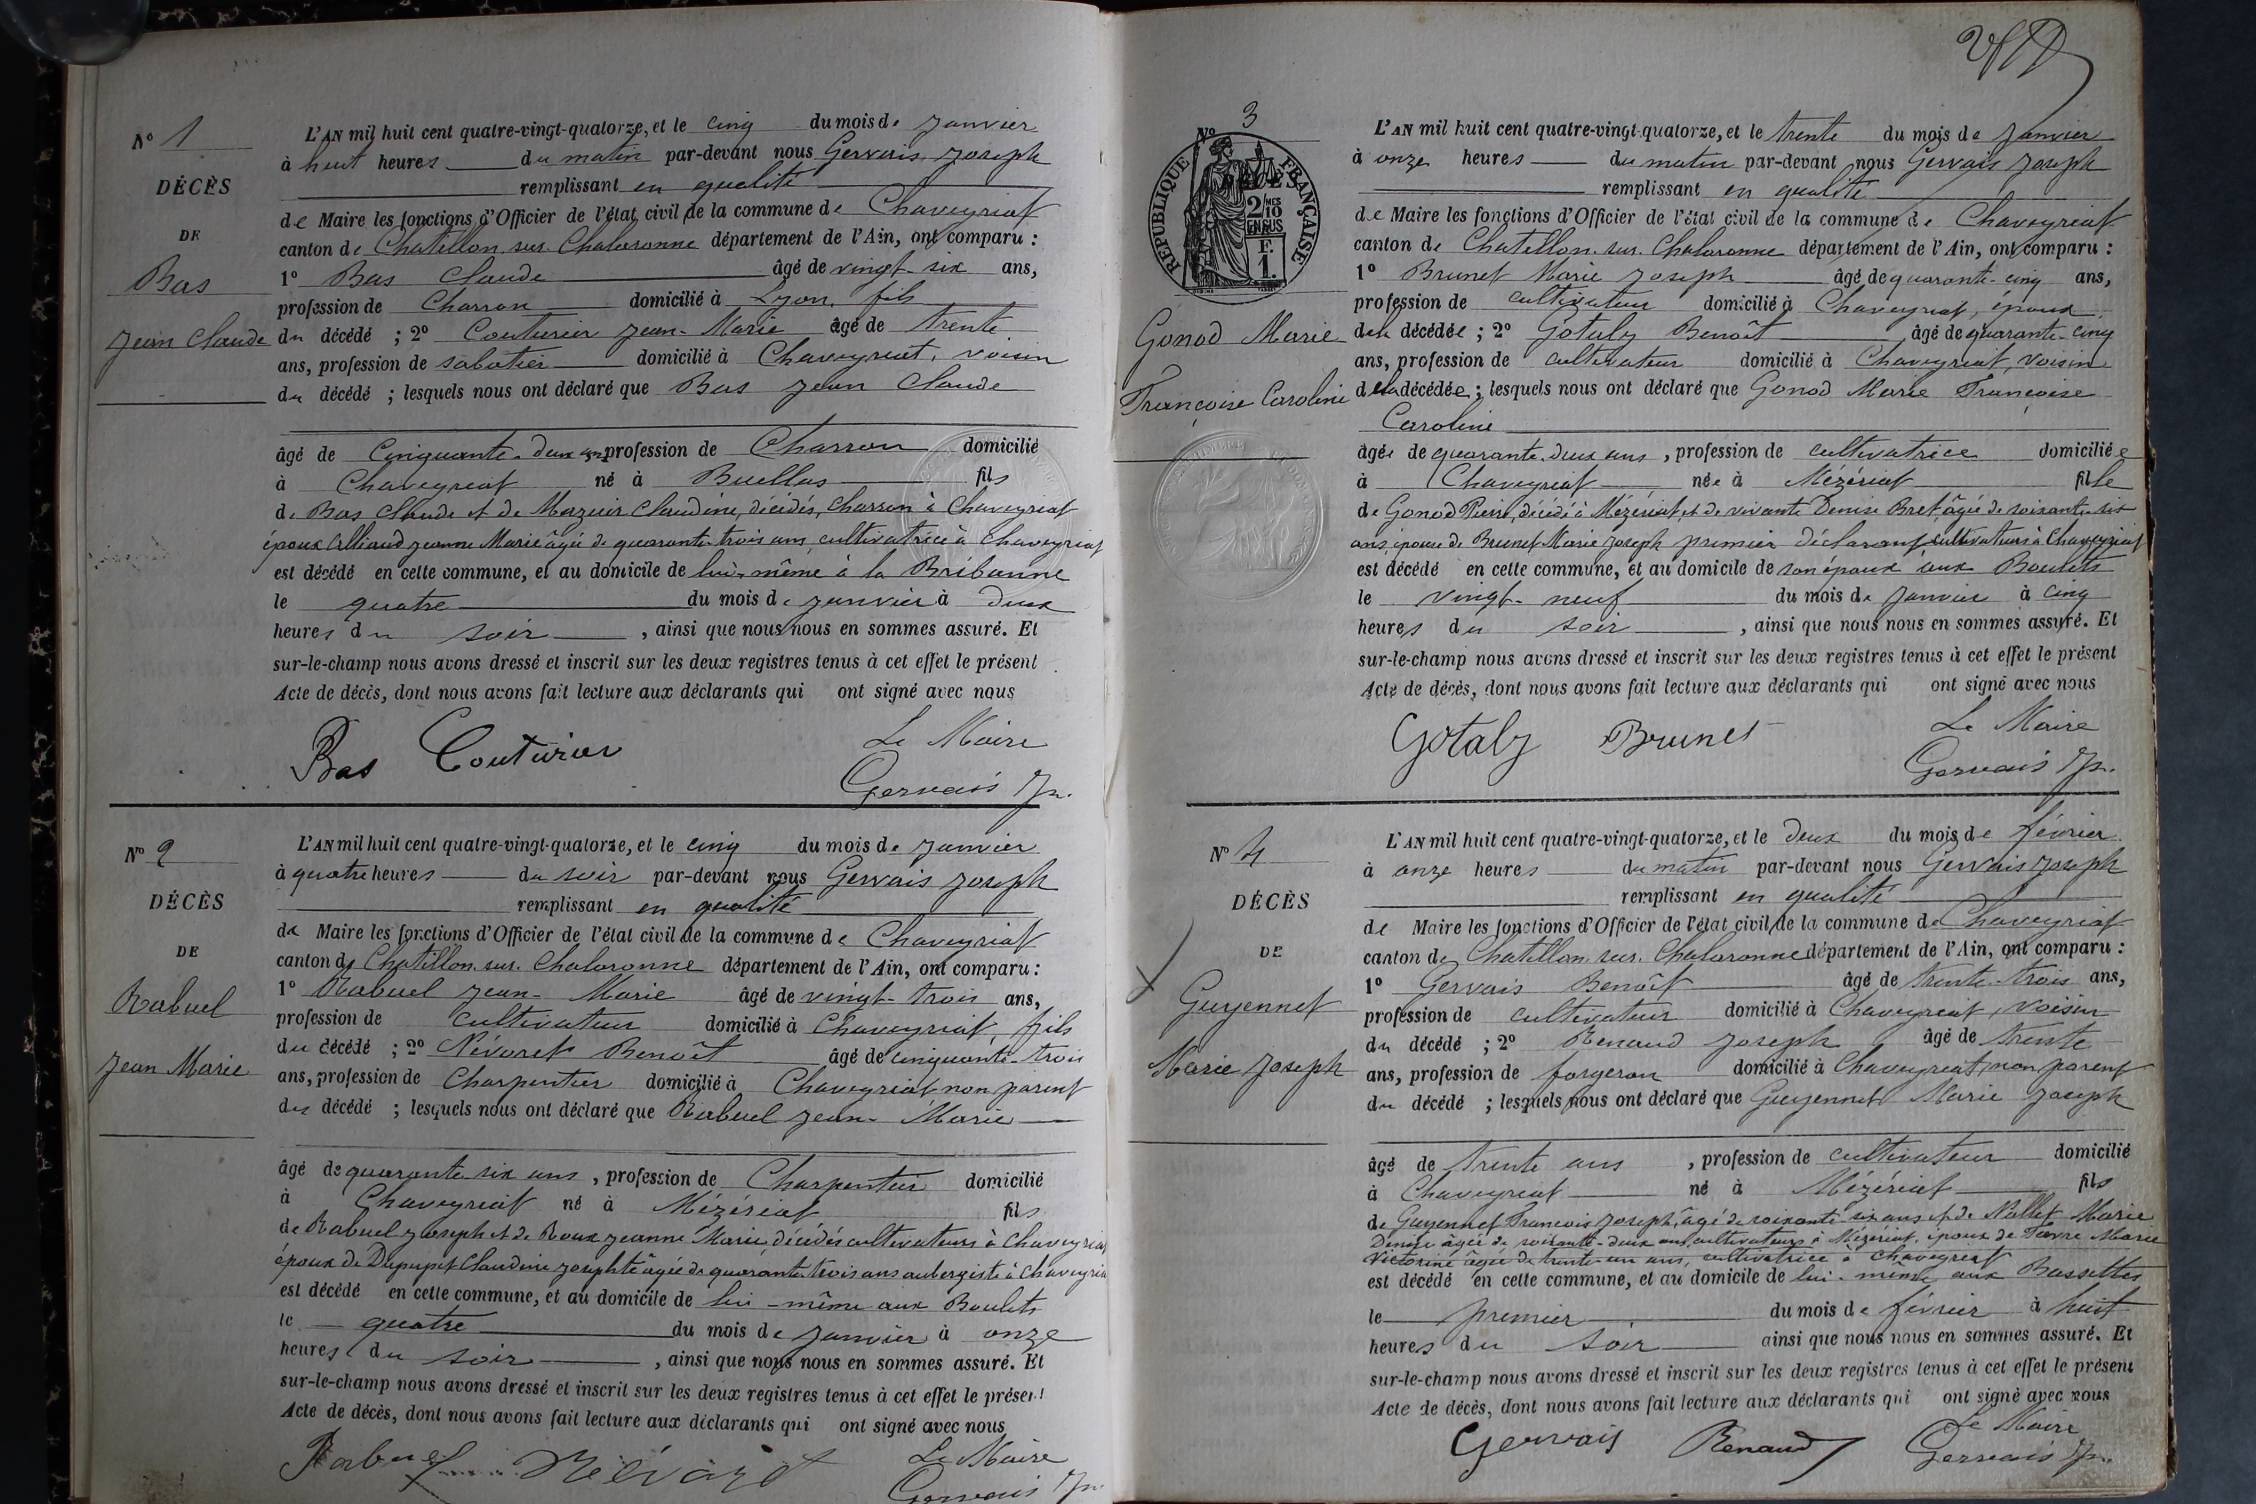 N° 1
DÉCÈS
DE
Bas
Jean Claude
L'AN mil huit cent quatre-vingt-quatorze, et le cinq du mois de Janvier
à huit heures du matin par-devant nous Gervais Joseph
remplissant en qualité
de Maire les fonctions d'Officier de l'état civil de la commune de Chaveyriat
canton de Chatillon-sur-Chalaronne département de l'Ain, ont comparu :
1° Bas Claude âgé de vingt-six ans,
profession de Charron domicilié à Lyon, fils
du décédé ; 2° Couturier Jean-Marie âgé de trente
ans, profession de sabotier domicilié à Chaveyriat, voisin
du décédé ; lesquels nous ont déclaré que Bas Jean Claude
âgé de Cinquante-deux ans profession de Charron domicilié
à Chaveyriat né à Buellas fils
de Bas Claude et de Mazuir Claudine, décédés, Charron à Chaveyriat
époux Jeanne Marie âgée de quarante-trois ans, cultivatrice à Chaveyriat
est décédé en cette commune, et au domicile de lui-même à la Bribanne
le quatre du mois de Janvier à deux
heures du soir , ainsi que nous nous en sommes assuré. Et
sur-le-champ nous avons dressé et inscrit sur les deux registres tenus à cet effet le présent
Acte de décès, dont nous avons fait lecture aux déclarants qui ont signé avec nous
Bas Couturier Le Maire
Gervais Jh.
N° 2
DÉCÈS
DE
Rabuel
Jean Marie
L'AN mil huit cent quatre-vingt-quatorze, et le cinq du mois de Janvier
à quatre heures du soir par-devant nous Gervais Joseph
remplissant en qualité
de Maire les fonctions d'Officier de l'état civil de la commune de Chaveyriat
canton de Chatillon-sur-Chalaronne département de l'Ain, ont comparu :
1° Rabuel Jean-Marie âgé de vingt-trois ans,
profession de cultivateur domicilié à Chaveyriat, fils
du décédé ; 2° Névoret Benoît âgé de cinquante-trois
ans, profession de Charpentier domicilié à Chaveyriat non parent
du décédé ; lesquels nous ont déclaré que Rabuel Jean-Marie
âgé de quarante-six ans , profession de Charpentier domicilié
à Chaveyriat né à Mézériat fils
de Rabuel Joseph et de Roux Jeanne Marie, décédés cultivateurs à Chaveyriat
époux de Dupupet Claudine Josephte âgée de quarante-trois ans aubergiste à Chaveyriat
est décédé en cette commune, et au domicile de lui-même aux Boulets
le quatre du mois de Janvier à onze
heures du soir , ainsi que nous nous en sommes assuré. Et
sur-le-champ nous avons dressé et inscrit sur les deux registres tenus à cet effet le présent
Acte de décès, dont nous avons fait lecture aux déclarants qui ont signé avec nous
Rabuel Le Maire
Gervais Jh.
N° 3
RÉPUBLIQUE FRANÇAISE
2/10 MES
EN SUS
1 F.
Gonod Marie
Françoise Caroline
L'AN mil huit cent quatre-vingt-quatorze, et le trente du mois de Janvier
à onze heures du matin par-devant nous Gervais Joseph
remplissant en qualité
de Maire les fonctions d'Officier de l'état civil de la commune de Chaveyriat
canton de Chatillon-sur-Chalaronne département de l'Ain, ont comparu :
1° Brunet Marie Joseph âgé de quarante-cinq ans,
profession de cultivateur domicilié à Chaveyriat, époux
de la décédée ; 2° Gotaly Benoît âgé de quarante-cinq
ans, profession de cultivateur domicilié à Chaveyriat, voisin
de la décédée ; lesquels nous ont déclaré que Gonod Marie Françoise
Caroline
âgée de quarante-deux ans , profession de cultivatrice domiciliée
à Chaveyriat née à Mézériat fille
de Gonod Pierre, décédé à Mézériat, et de vivante Denise Bret âgée de soixante-six
ans, épouse de Brunet Marie Joseph premier déclarant, cultivateurs à Chaveyriat
est décédé en cette commune, et au domicile de son époux aux Boulets
le vingt-neuf du mois de Janvier à cinq
heures du soir , ainsi que nous nous en sommes assuré. Et
sur-le-champ nous avons dressé et inscrit sur les deux registres tenus à cet effet le présent
Acte de décès, dont nous avons fait lecture aux déclarants qui ont signé avec nous
Gotaly Brunet Le Maire
Gervais Jh.
N° 4
DÉCÈS
DE
Guyennet
Marie Joseph
L'AN mil huit cent quatre-vingt-quatorze, et le deux du mois de février
à onze heures du matin par-devant nous Gervais Joseph
remplissant en qualité
de Maire les fonctions d'Officier de l'état civil de la commune de Chaveyriat
canton de Chatillon-sur-Chalaronne département de l'Ain, ont comparu :
1° Gervais Benoît âgé de trente-trois ans,
profession de cultivateur domicilié à Chaveyriat, voisin
du décédé ; 2° Renaud Joseph âgé de trente
ans, profession de forgeron domicilié à Chaveyriat, non parent
du décédé ; lesquels nous ont déclaré que Guyennet Marie Joseph
âgé de trente ans , profession de cultivateur domicilié
à Chaveyriat né à Mézériat fils
de Guyennet François Joseph, âgé de soixante-six ans et de Nallet Marie
Denise âgée de soixante-deux ans, cultivateurs à Mézériat, époux de Favre Marie
Victorine âgée de trente-un ans, cultivatrice à Chaveyriat
est décédé en cette commune, et au domicile de lui-même aux Bassettes
le premier du mois de février à huit
heures du soir ainsi que nous nous en sommes assuré. Et
sur-le-champ nous avons dressé et inscrit sur les deux registres tenus à cet effet le présent
Acte de décès, dont nous avons fait lecture aux déclarants qui ont signé avec nous
Gervais Renaud Le Maire
Gervais Jh.